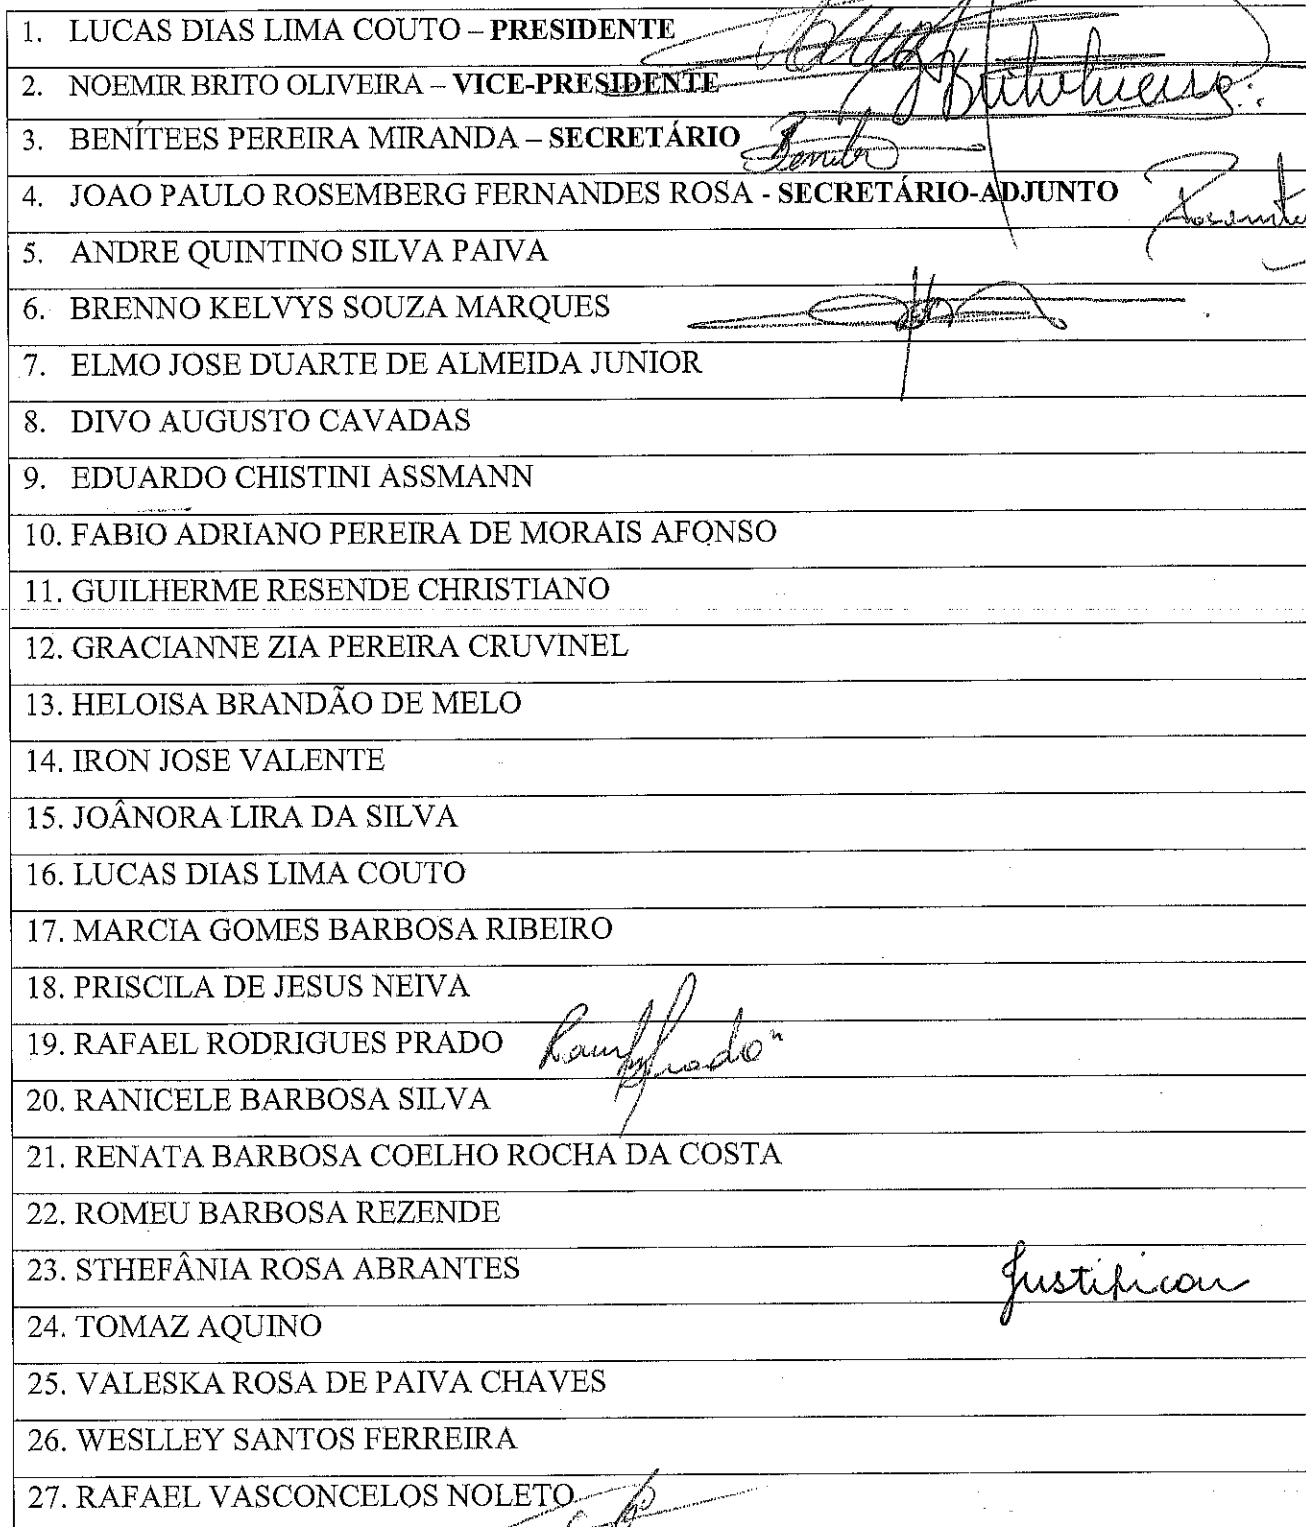 1. LUCAS DIAS LIMA COUTO – PRESIDENTE
2. NOEMIR BRITO OLIVEIRA – VICE-PRESIDENTE
3. BENÍTEES PEREIRA MIRANDA – SECRETÁRIO
4. JOAO PAULO ROSEMBERG FERNANDES ROSA - SECRETÁRIO-ADJUNTO
5. ANDRE QUINTINO SILVA PAIVA
6. BRENNO KELVYS SOUZA MARQUES
7. ELMO JOSE DUARTE DE ALMEIDA JUNIOR
8. DIVO AUGUSTO CAVADAS
9. EDUARDO CHISTINI ASSMANN
10. FABIO ADRIANO PEREIRA DE MORAIS AFONSO
11. GUILHERME RESENDE CHRISTIANO
12. GRACIANNE ZIA PEREIRA CRUVINEL
13. HELOISA BRANDÃO DE MELO
14. IRON JOSE VALENTE
15. JOÂNORA LIRA DA SILVA
16. LUCAS DIAS LIMA COUTO
17. MARCIA GOMES BARBOSA RIBEIRO
18. PRISCILA DE JESUS NEIVA
19. RAFAEL RODRIGUES PRADO
20. RANICELE BARBOSA SILVA
21. RENATA BARBOSA COELHO ROCHA DA COSTA
22. ROMEU BARBOSA REZENDE
23. STHEFÂNIA ROSA ABRANTES Justificou
24. TOMAZ AQUINO
25. VALESKA ROSA DE PAIVA CHAVES
26. WESLLEY SANTOS FERREIRA
27. RAFAEL VASCONCELOS NOLETO